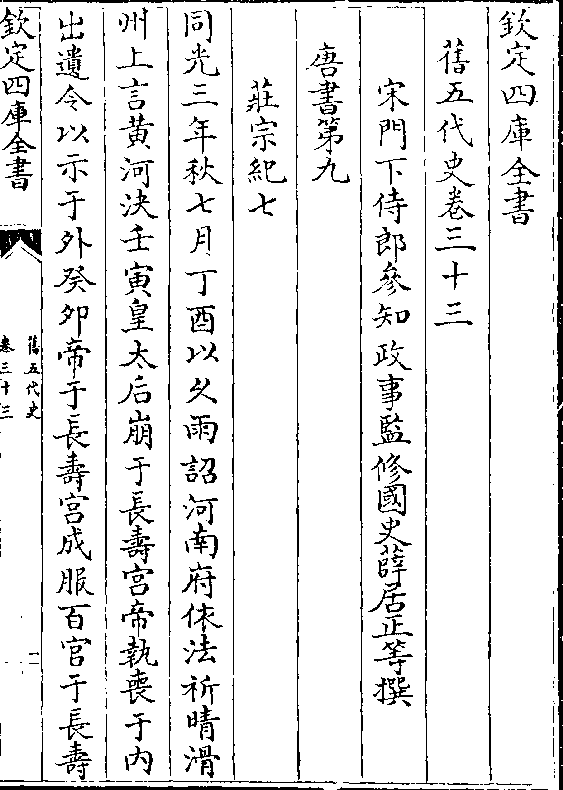 欽定四庫全書
舊五代史卷三十三
宋門下侍郎參知政事監修國史薛居正等撰
唐書第九
莊宗紀七
同光三年秋七月丁酉以久雨詔河南府依法祈晴滑
州上言黄河決壬寅皇太后崩于長壽宫帝執喪于内
出遺令以示于外癸卯帝于長壽宫成服百官于長壽
欽定四庫全書
舊五代史
卷三十三
一